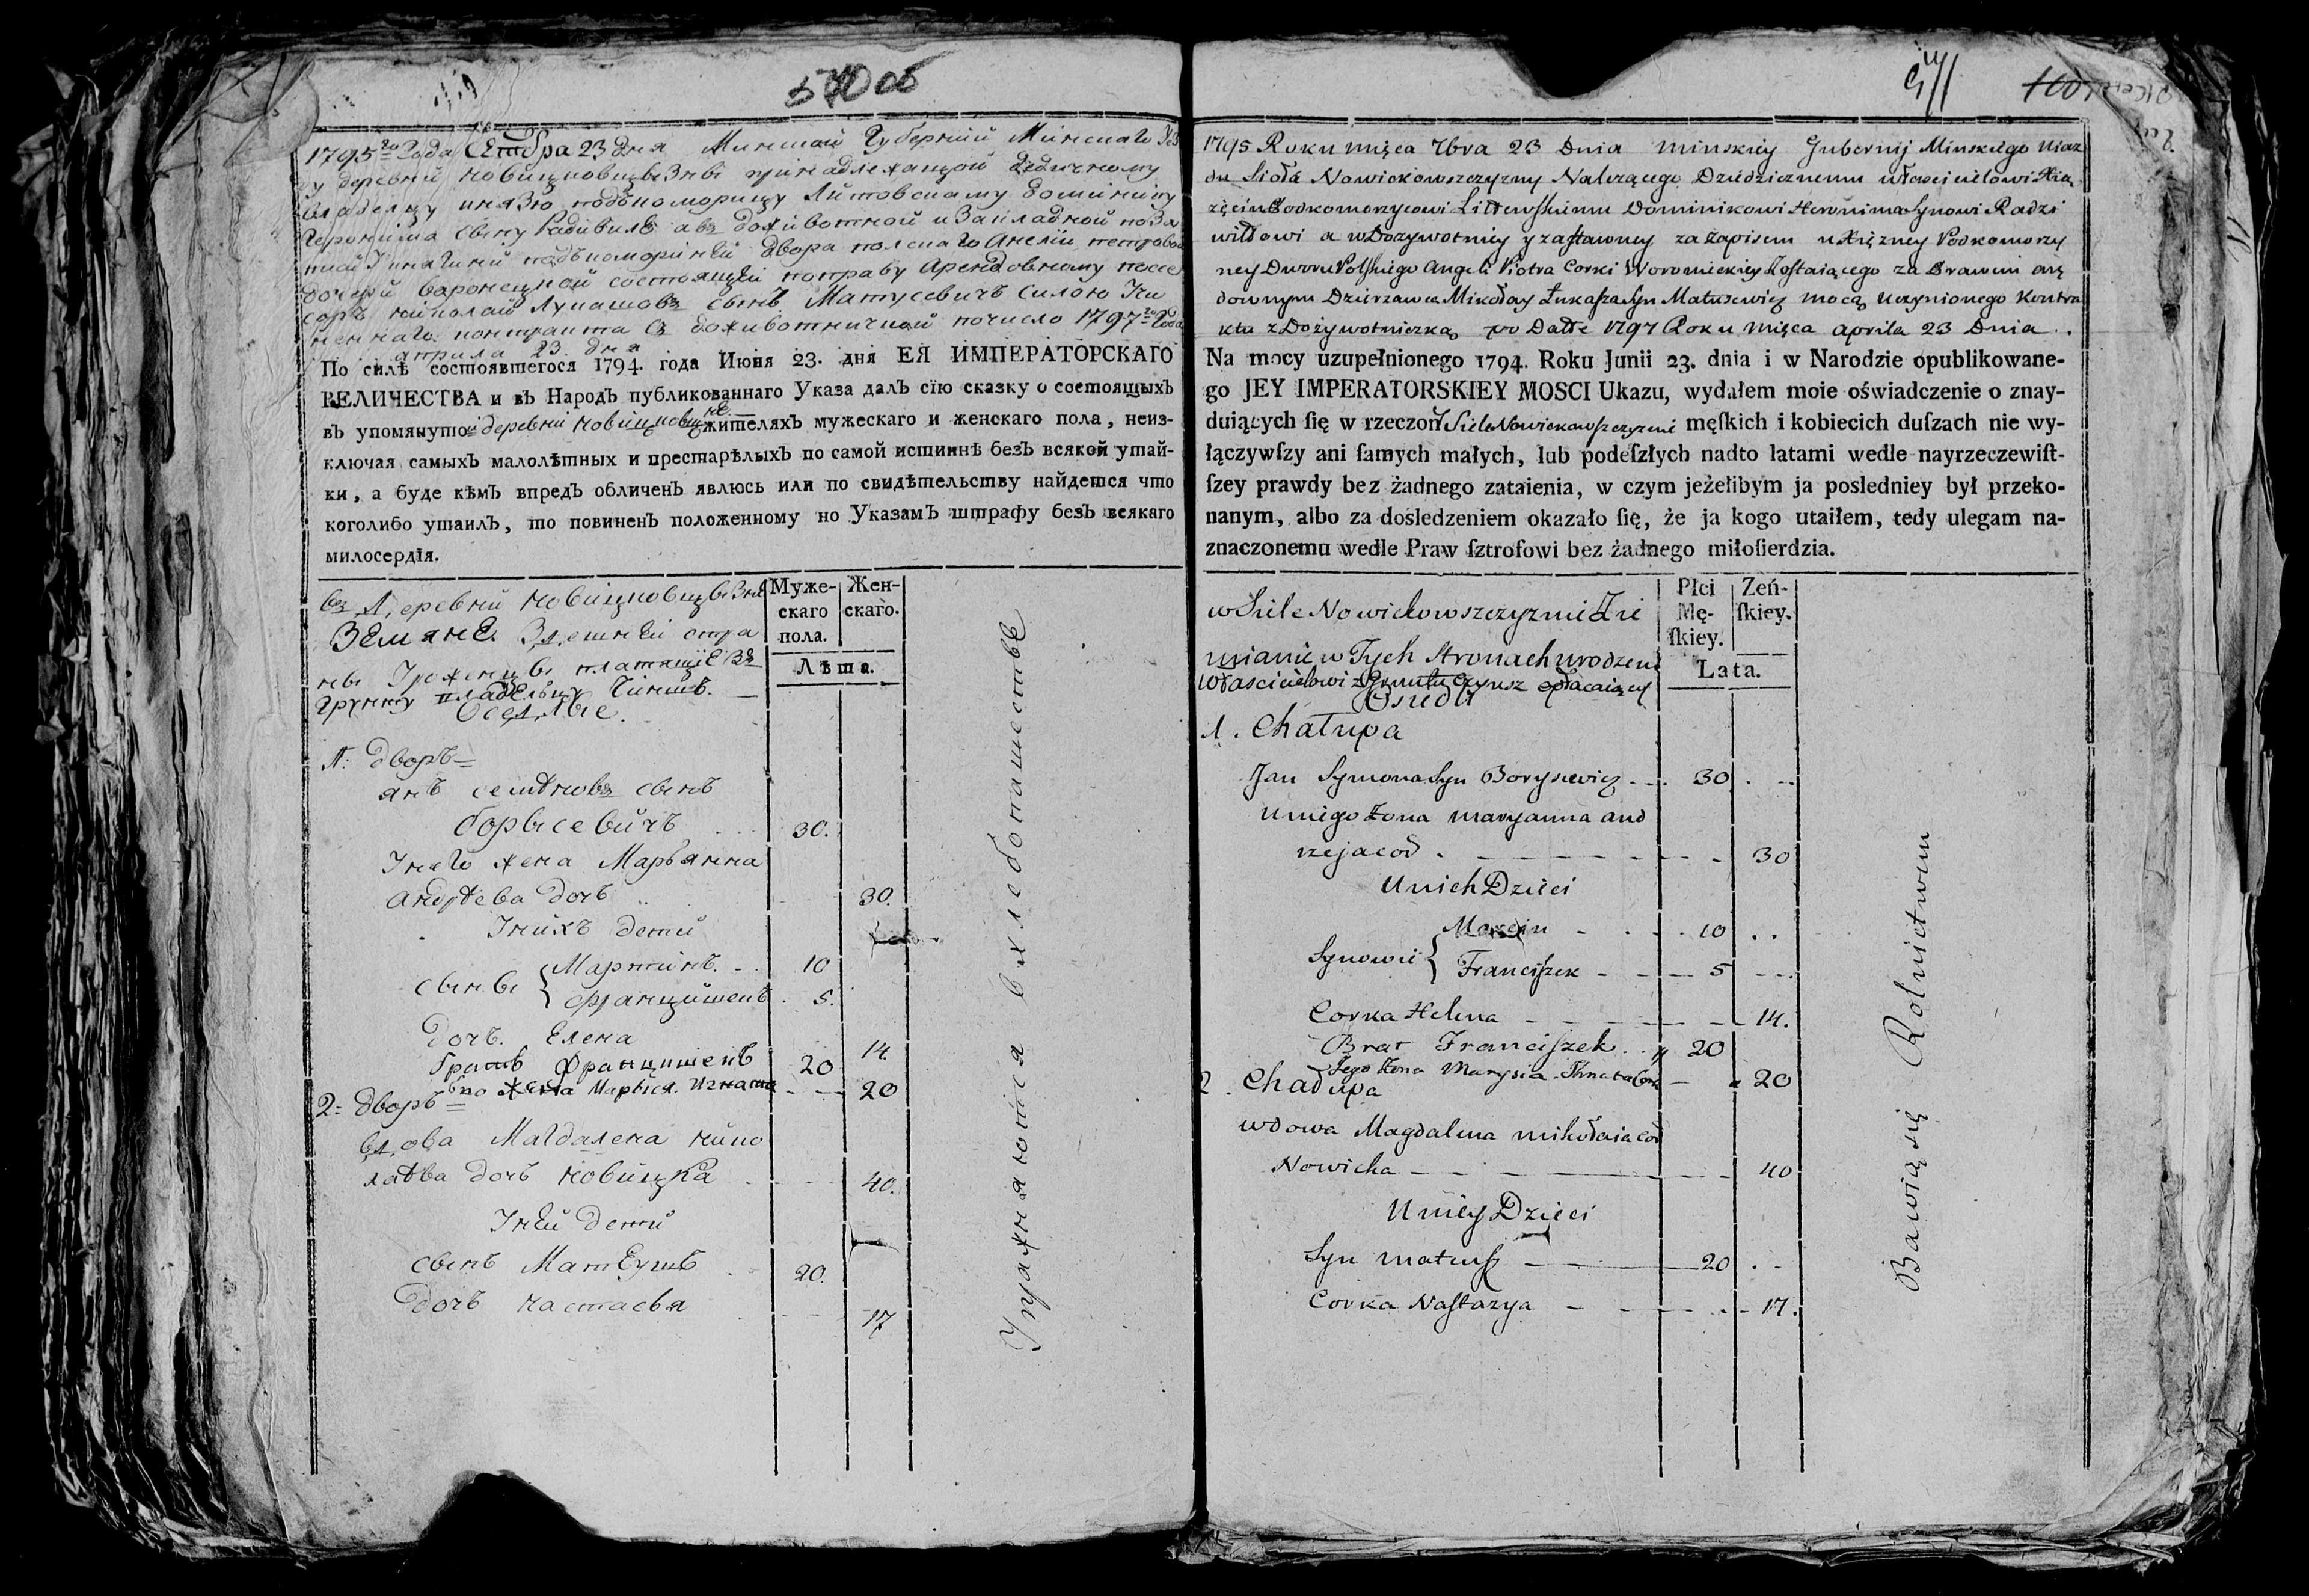 570 об
1795го Года Сентбра 23 дня Минской Губернии Минскаго
деревни Новицковщызны принадлежащой Дедичному
владелцу князю подкоморицу Литовскому доминику
Геронима сыну Радивилу а въ доживотной и закладной
двора полскаго Анели петровой
дочери воронецкой состоящей по праву Арендовному
николай Лукашовъ сынъ Матусевичъ силою
контракта съ доживотничкой по число 1797го Года
априля 23 дня
По силѣ состоявшегося 1794. года Июня 23. дня ЕЯ ИМПЕРАТОРСКАГО
ВЕЛИЧЕСТВА и въ Народъ публикованнаго Указа далъ сїю сказку о состоящыхъ
въ упомянутой деревни Новицковщызне жителяхъ мужескаго и женскаго пола, неиз-
ключая самыхъ малолѣтныхъ и престарѣлыхъ по самой истиннѣ безъ всякой утай-
ки, а буде кѣмъ впредь обличенъ явлюсь или по свидѣтельству найдется что
коголибо утаилъ, то повиненъ положенному по Указамъ штрафу безъ всякаго
милосердїя.
въ Деревни Новицковщызне
Земяне Здешней стра
ны Уроженцы платящие въ
грунту владельцу Чиншъ.
Оседлые.
Муже-
скаго
пола.
Жен-
скаго.
Лѣта.
1: Дворъ
янъ семѣновъ сынъ
борысевичъ 30.
У него жена Марьянна
андрѣева дочь 30.
У нихъ дети
сыны { Мартинъ. 10
францишекъ 5.
дочь. Елена 14
братъ Францишекъ 20
его жена Марыся Игната 20
2: дворъ
вдова Магдалена нико
лаѣва дочь новицка 40.
У ней дети
сынъ Матеушъ 20.
Дочь настасья 17
Упражняются в хлебопашестве
1795 Roku mięca 7bra 23 Dnia minskiey Gubernij Minskiego Uiaz
du Sioła Nowickowszczyzny Nalezącego Dziedzicznemu właścicielowi Xią
zęciu Podkomorzycowi Littewskiemu Dominikowi Heronima Synowi Radzi
wiłłowi a w Dozywotniey y zastawney za zapisem u Xięzney Podkomorzy
ney Dworu Polskiego Angeli Piotra Corki Woronieckiey Zostaiącego za Prawem arę
downym Dzierzawca Mikołay Łukasza Syn Matusewicz mocą uczynionego Kontra
ktu z Dożywotniczką po Datte 1797 Roku mięca aprila 23 Dnia.
Na mocy uzupełnionego 1794. Roku Junii 23. dnia i w Narodzie opublikowane-
go JEY IMPERATORSKIEY MOSCI Ukazu, wydałem moie oświadczenie o znay-
duiących ſię w rzeczoney Siele Nowickowszczyznie męſkich i kobiecich duſzach nie wy-
łączywſzy ani ſamych małych, lub podeſzłych nadto latami wedle nayrzeczewiſt-
ſzey prawdy bez żadnego zataienia, w czym jeżelibym ja posledniey był przeko-
nanym, albo za dosledzeniem okazało ſię, że ja kogo utaiłem, tedy ulegam na-
znaczonemu wedle Praw ſztrofowi bez żadnego miłoſierdzia.
w Siele Nowickowszczyznie Zie
mianie w Tych stronach urodzeni
właścicielowi z Gruntu Czynsz opłacaiący
Osiedli
Płci
Mę-
ſkiey.
Zeń-
ſkiey.
Lata.
1. Chałupa
Jan Symona Syn Borysiewicz 30
U niego Zona maryanna and
rzeja cor 30
U nich Dzieci
Synowie { Marcin 10
Franciszek 5
Corka Helena 14.
Brat Franciszek 20
Jego Zona Marysia Ihnata Corka 20
2. Chałupa
wdowa Magdalena mikołaia cor
Nowicka 40
U niey Dzieci
Syn mateusz 20
Corka Nastazya 17.
Bawią się Rolnictwem